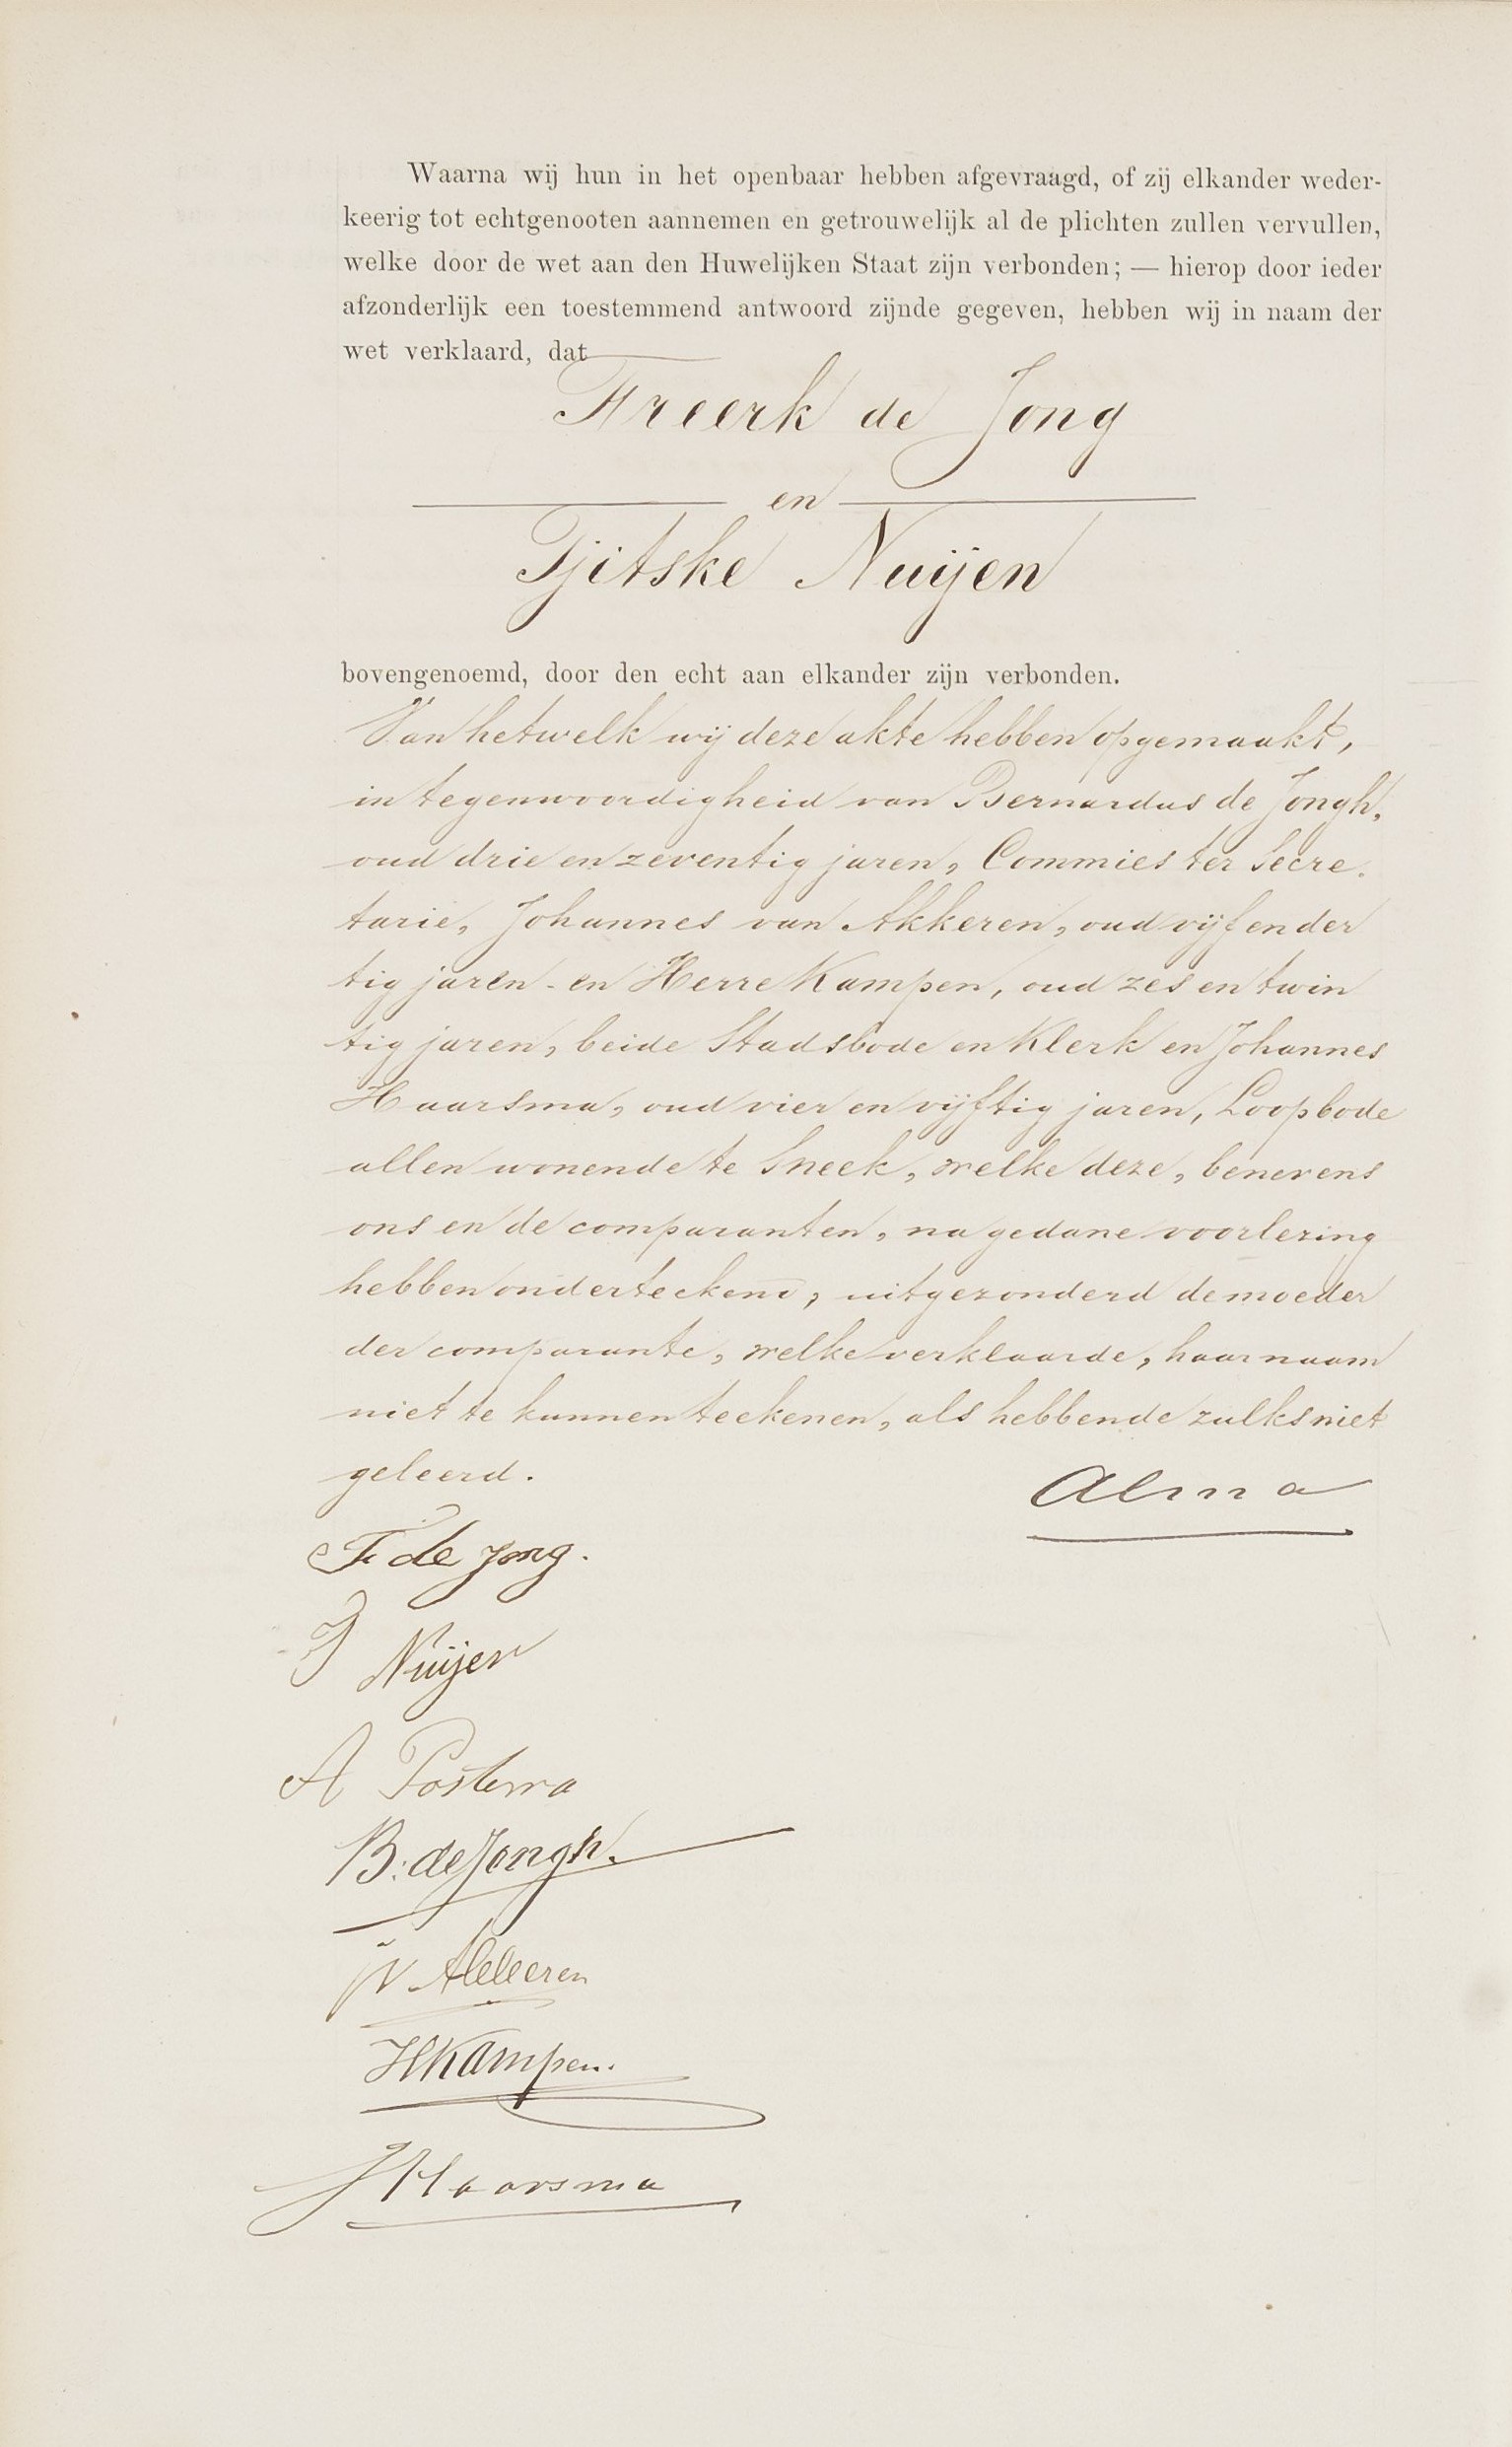 Waarna wij hun in het openbaar hebben afgevraagd, of zij elkander weder-
keerig tot echtgenooten aannemen en getrouwelijk al de plichten zullen vervullen,
welke door de wet aan den Huwelijken Staat zijn verbonden; — hierop door ieder
afzonderlijk een toestemmend antwoord zijnde gegeven, hebben wij in naam der
wet verklaard, dat
Freerk de Jong
en
Tjitske Nuijen
bovengenoemd, door den echt aan elkander zijn verbonden.
Van hetwelk wij deze akte hebben opgemaakt,
in tegenwoordigheid van Bernardus de Jongh,
oud drie en zeventig jaren, Commies ter Secre-
tarie, Johannes van Akkeren, oud vijf en der
tig jaren - en Herre Kampen, oud zes en twin
tig jaren, beide Stadsbode en Klerk en Johannes
Haarsma, oud vier en vijftig jaren, Loopbode
allen wonende te Sneek, welke deze, benevens
ons en de comparanten, na gedane voorlezing
hebben onderteekend, uitgezonderd de moeder
der comparante, welke verklaarde, haar naam
niet te kunnen teekenen, als hebbende zulks niet
geleerd.
Alma
F de Jong.
T Nuijen
A Postma
B: de Jongh.
J v Akkeren
H Kampen.
J Haarsma